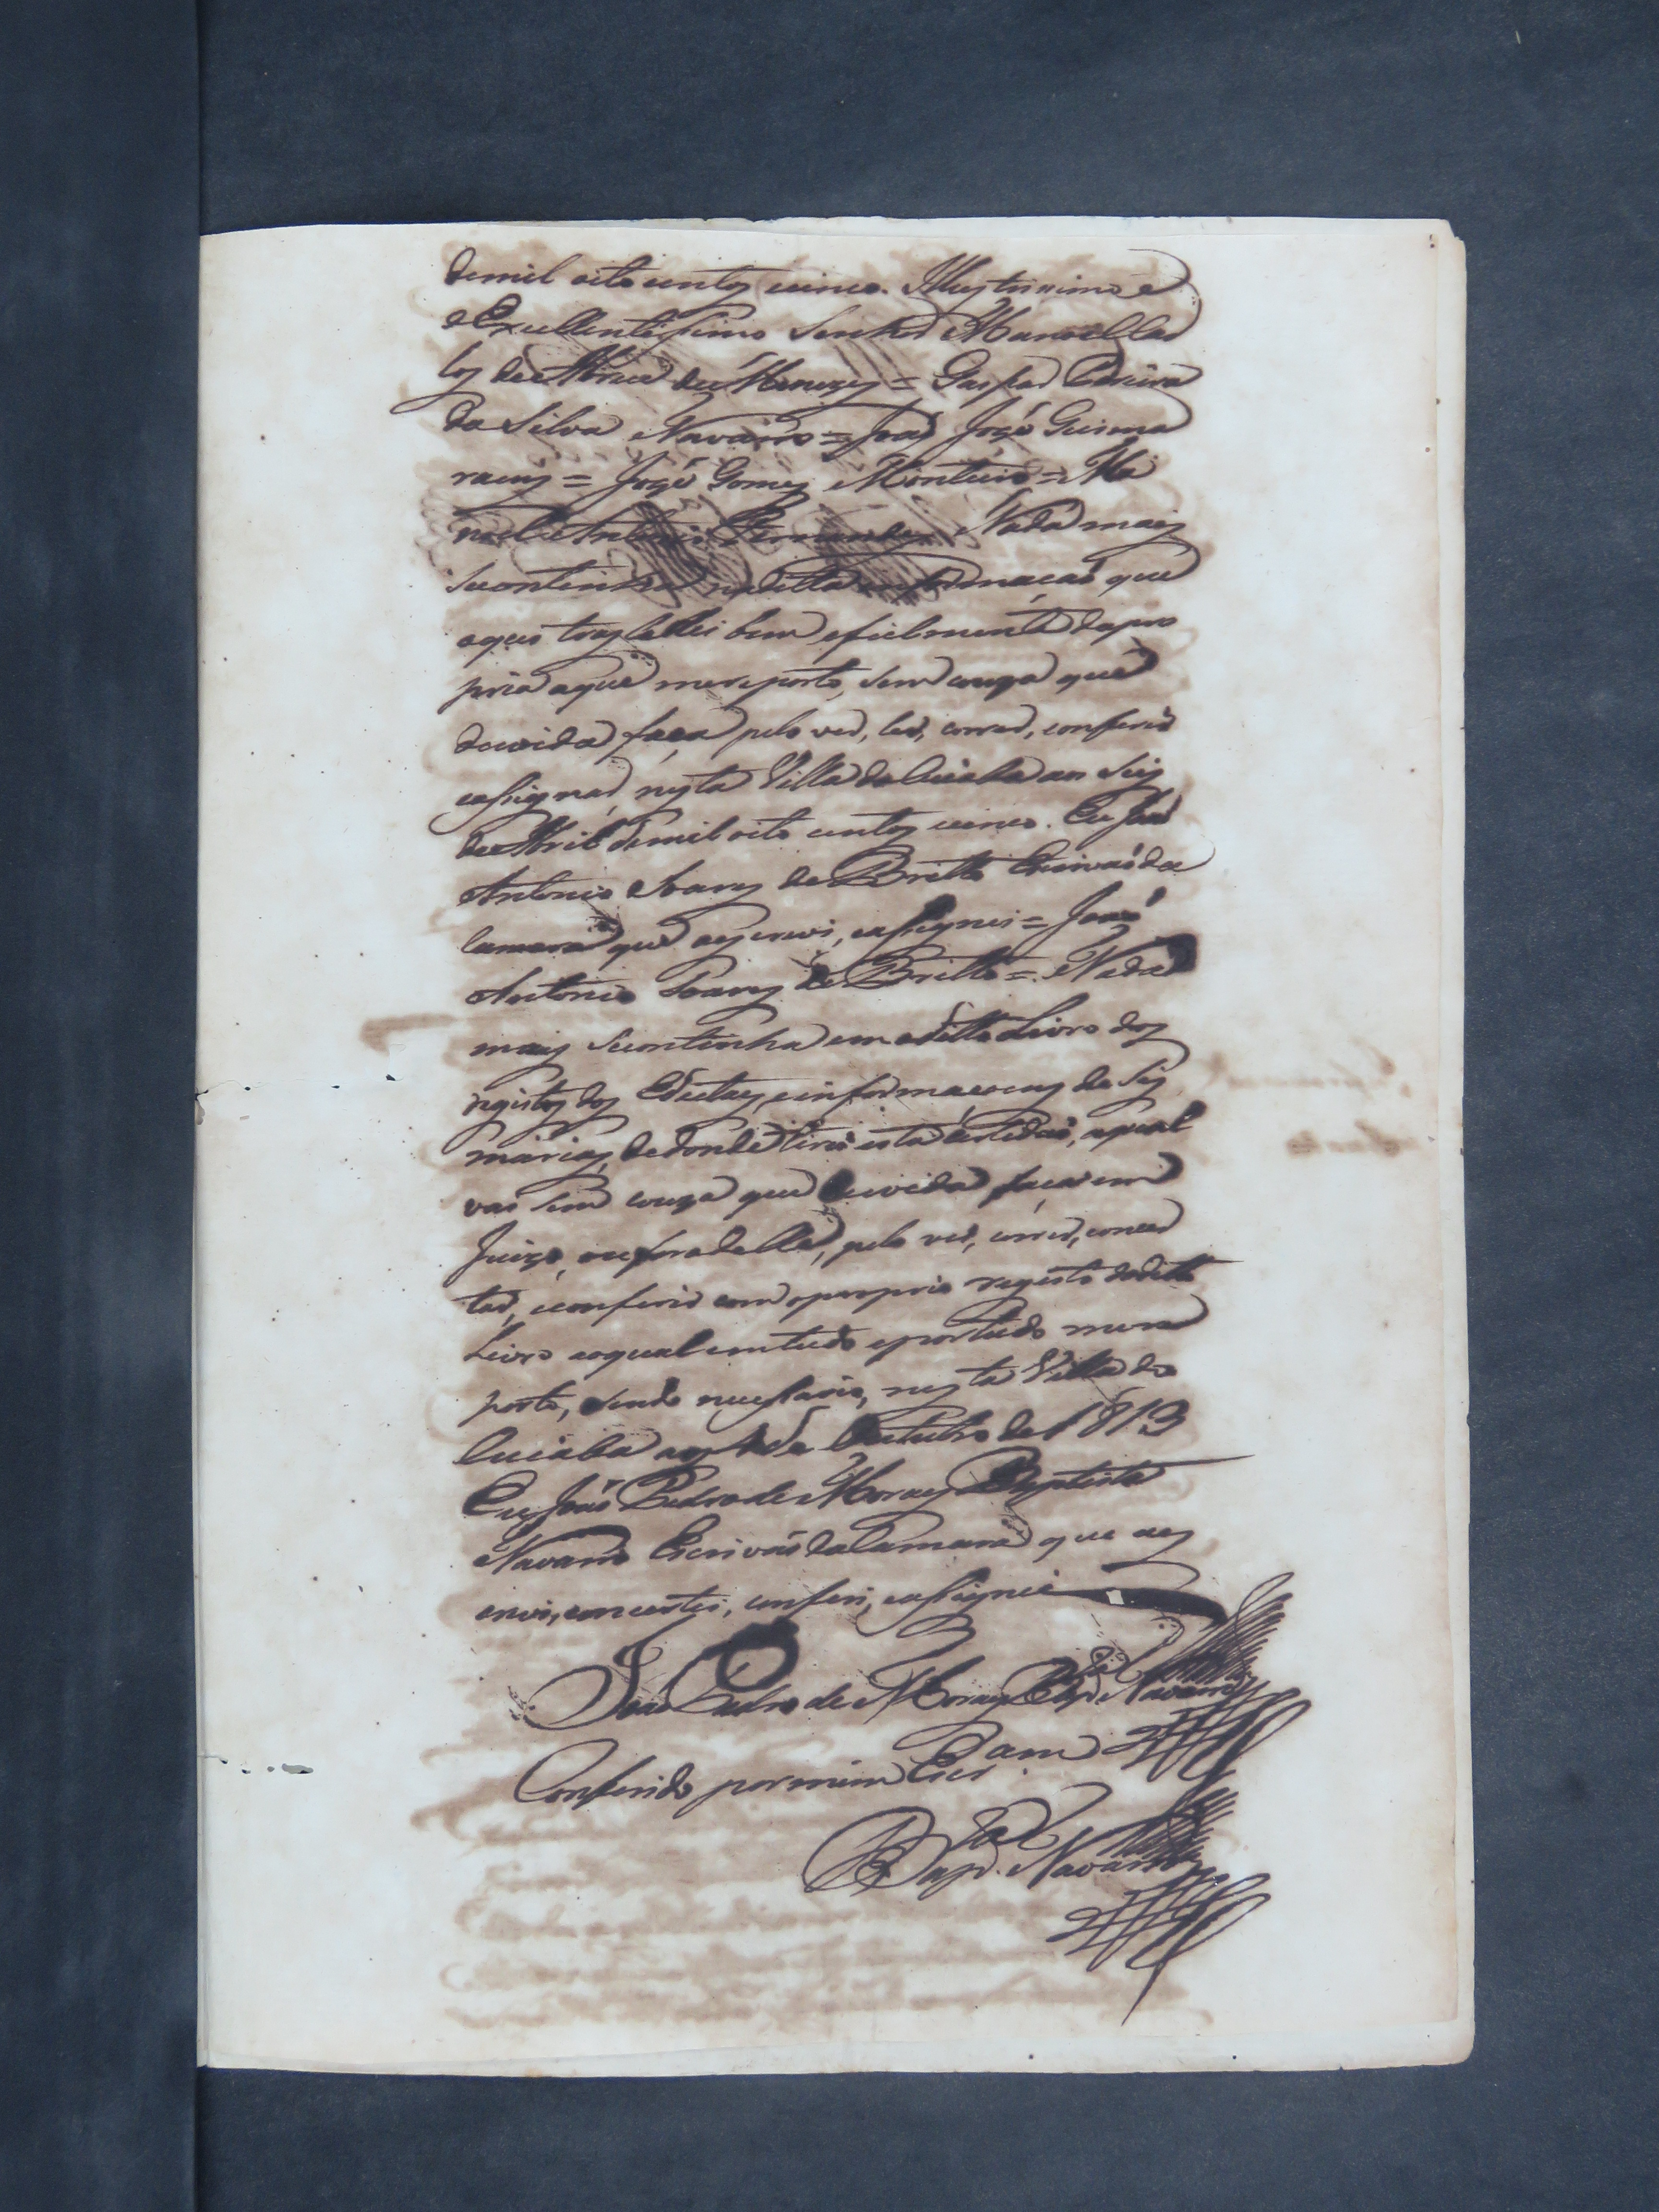 demil oito centos cinco. Illustrissimo e
e Excellentissimo Senhor Manoel Car
los de Abreu de Menezes = Gaspar Pereira
da Silva Navarro = João José Guima
raens = José Gomes Monteiro = Ma
noel Antonio Fernandes Nada mais
secontinha naditta informacaõ que
aqui trasladei bem efielmente dapro
pria aque mereporto, sem couza que
duvida faça pelo ver, ler, correr, conferir
eassignar, nesta Villa do Cuiaba aos seis
de Abril demil oito centos cinco. Eu Joaõ
Antonio Soares de Britto Escrivaõ da
Camara que aescrevi, eassignei = Joaõ
Antonio Soares de Britto = Nada
mais secontinha em oditto Livro dos
registos dos Edictaes, einformacoens de Ses
marias, dedonde tirei esta certidaõ, aqual
vai sem couza que duvida faça em
Juizo, oufora delle, pelo ver, correr, concer
tar, econferir com oproprio registo doditto
Livro aoqual emtudo eportudo mere
porto, sendo necessario, nesta Villa do
Cuiaba aos de Outubro de 1813
Eu Joaõ Pedro de Moraes Baptista
Navarro Escrivaõ da Camara que aes
crevi, concertei, conferi, eassignei
Joaõ Pedro de Moraes Bapt.ª Navarro
Conferido por mim Escr.am
Bapt.ª Navarro